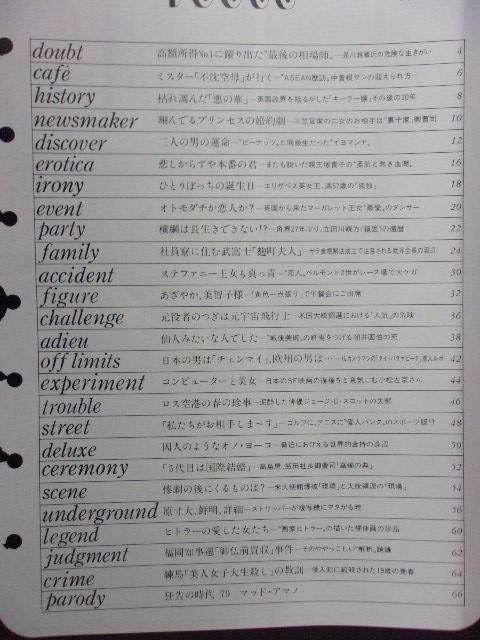 doubt 高額所得No.1に躍り出た"最後の相場師。—是川銀蔵氏の危険な生きがい 4
café ミスター「不沈空母」が行く—"ASEAN歴訪。中曽根サンの迎えられ方 6
history 枯れ凋んだ「悪の華」—英国政界を揺るがした「キーラー嬢」その後の20年 8
newsmaker 翔んでるプリンセスの婚約劇—三笠宮家の二女のお相手は「裏千家」御曹司 10
discover 二人の男の運命—"ピーナッツ。と同級生だった"イヨマンテ。 12
erotica 悲しからずや本番の君—またも脱いだ親王塚貴子の"柔肌と熱き血潮。 16
irony ひとりぼっちの誕生日—エリザベス英女王、満57歳の「孤独」 18
event オトモダチか恋人か?—英国から来たマーガレット王女"最愛。のダンサー 20
party 横綱は長生きできない!?—角界27年ぶり、立田川親方(鏡里)の還暦 22
family 社員寮に住む武富士「麹町夫人」—サラ金規制法成立で注目される武井会長の周辺 24
accident ステファニー王女も真っ青—"恋人。ベルモンド2世がレース場で大ケガ 30
figure あざやか、美智子様—「黄色一点張り」で午餐会にご出席 32
challenge 元役者のつぎは元宇宙飛行士—米国大統領選における「人気」の危険 36
adieu 仙人みたいな人でした—"戦後美術。の終焉をつげる朝井閑右衛の死 38
off limits 日本の男は「チェンマイ」、欧州の男は…… 42
experiment コンピューターと美女—日本のSF映画の復権さと意気こむ小松左京さん 44
trouble ロス空港の春の珍事—泥酔した俳優ジョージ・C・スコットの失態 46
street 「私たちがお相手しま〜す」—ゴルフに、テニスに"愛人バンク。のスポーツ版!? 48
deluxe 囚人のようなオノ・ヨーコ—脅迫におびえる世界的金持の身辺 50
ceremony 「5代目は国際結婚」—高島屋、飯田社長御曹司「華燭の典」 52
scene 惨劇の後にくるものは?—米大使館爆破「現場」と大統領派の「現場」 54
underground 原寸大、鮮明、詳細—ストリッパーが複写機にマタがる時 56
legend ヒトラーの愛した女たち—"画家ヒトラー。の描いた裸体画の珍品 60
judgment 福岡知事選「御仏前買収」事件—そのややっこしい"解釈。論議 62
crime 練馬「美人女子大生殺し」の教訓—侵入犯に絞殺された19歳の青春 64
parody 狂告の時代 79 マッド・アマノ 66